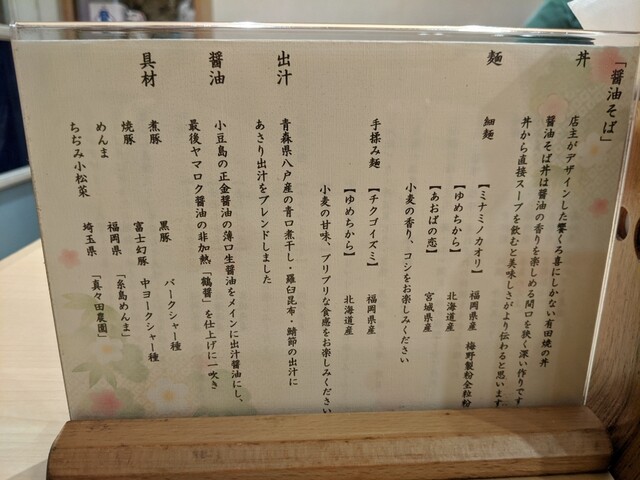 「醤油そば」
丼
店主がデザインした響くろ喜にしかない有田焼の丼
醤油そば丼は醤油の香りを楽しめる間口を狭く深い作りです
丼から直接スープを飲むと美味しさがより伝わると思います
麺
細麺 【ミナミノカオリ】 福岡県産 梅野製粉全粒粉
【ゆめちから】 北海道産
【あおばの恋】 宮城県産
小麦の香り、コシをお楽しみください
手揉み麺 【チクゴイズミ】 福岡県産
【ゆめちから】 北海道産
小麦の甘味、プリプリな食感をお楽しみください
出汁
青森県八戸産の青口煮干し・羅臼昆布・鯖節の出汁に
あさり出汁をブレンドしました
醤油
小豆島の正金醤油の薄口生醤油をメインに出汁醤油にし、
最後ヤマロク醤油の非加熱「鶴醤」を仕上げに一吹き
具材
煮豚 黒豚 バークシャー種
焼豚 富士幻豚 中ヨークシャー種
めんま 福岡県 「糸島めんま」
ちぢみ小松菜 埼玉県 「真々田農園」